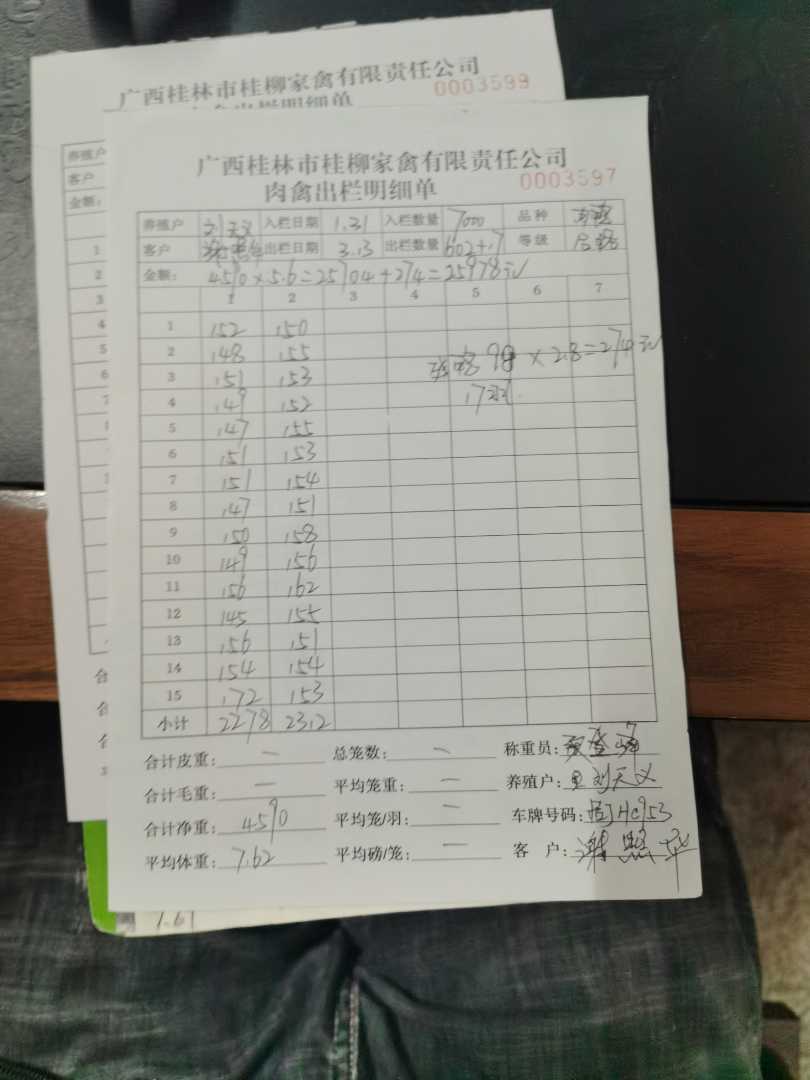 广西桂林市桂柳家禽有限责任公司
0003599
养殖户
客户
金额:
1
2
3
4
5
6
7
广西桂林市桂柳家禽有限责任公司
肉禽出栏明细单 0003597
养殖户 刘天义 入栏日期 1.31 入栏数量 7000 品种
客户 出栏日期 3.13 出栏数量 602+17 等级
金额: 4590×5.6=25704+274=25978元
1 2 3 4 5 6 7
1 152 150
2 148 155
98×2.8=274元
3 151 153
4 149 152
17羽
5 147 155
6 151 153
7 151 154
8 147 151
9 150 158
10 149 156
11 156 162
12 145 155
13 156 151
14 154 154
15 172 153
小计 2278 2312
合计皮重: — 总笼数: — 称重员:
合计毛重: — 平均笼重: — 养殖户: 刘天义
合计净重: 4590 平均笼/羽: — 车牌号码:
平均体重: 7.62 平均磅/笼: — 客 户:
7.61